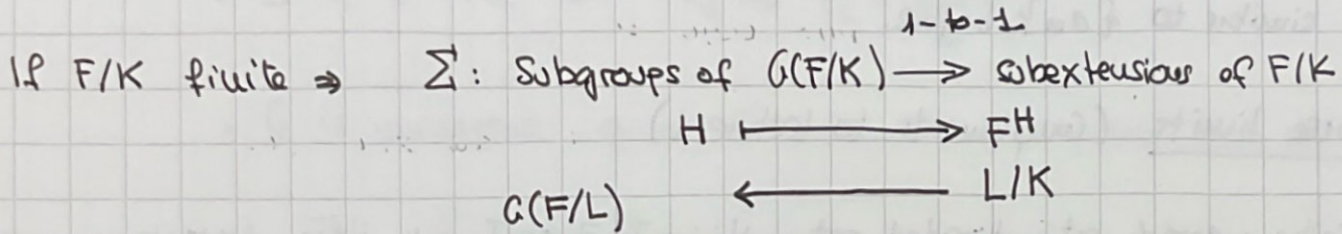 1-to-1
If F/K finite ⇒ Σ: Subgroups of G(F/K) ⟶ subextensions of F/K
H ⟼ F^H
G(F/L) ⟵ L/K